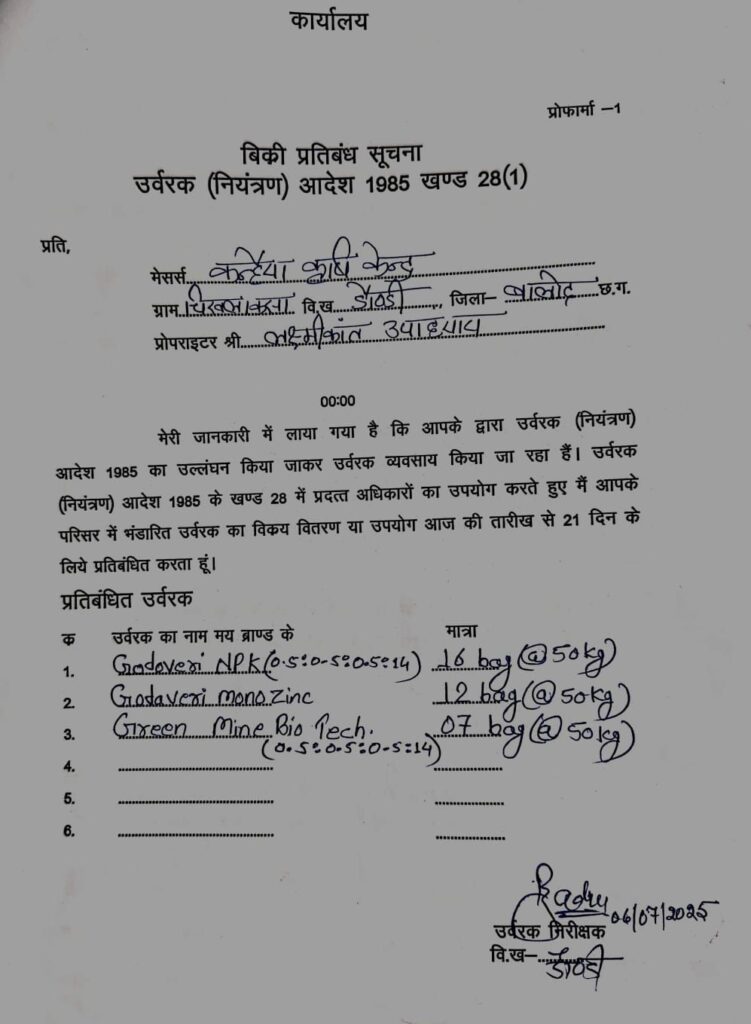 कार्यालय
प्रोफार्मा –1
बिक्री प्रतिबंध सूचना
उर्वरक (नियंत्रण) आदेश 1985 खण्ड 28(1)
प्रति,
मेसर्स कन्हैया कृषि केन्द्र
ग्राम चिखलाकसा वि.ख. डौण्डी जिला– बालोद छ.ग.
प्रोपराइटर श्री लक्ष्मीकांत उपाध्याय
00:00
मेरी जानकारी में लाया गया है कि आपके द्वारा उर्वरक (नियंत्रण)
आदेश 1985 का उल्लंघन किया जाकर उर्वरक व्यवसाय किया जा रहा हैं। उर्वरक
(नियंत्रण) आदेश 1985 के खण्ड 28 में प्रदत्त अधिकारों का उपयोग करते हुए मैं आपके
परिसर में भंडारित उर्वरक का विक्रय वितरण या उपयोग आज की तारीख से 21 दिन के
लिये प्रतिबंधित करता हूं।
प्रतिबंधित उर्वरक
क उर्वरक का नाम मय ब्राण्ड के मात्रा
1. Godaveri NPK(0.5:0-5:0.5:14) 16 bag (@ 50kg)
2. Godaveri mono zinc 12 bag (@ 50kg)
3. Green Mine Bio Tech. 07 bag (@ 50kg)
(0.5:0.5:0-5:14)
4.
5.
6.
06/07/2025
उर्वरक निरीक्षक
वि.ख– डौण्डी